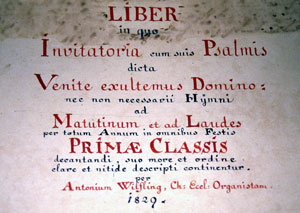 LIBER
in quo
Invitatoria cum suis Psalmis
dicta
Venite exultemus Domino:
nec non necessarii Hymni
ad
Matutinum et ad Laudes
per totum Annum in omnibus Festis
PRIMÆ CLASSIS
decantandi, suo more et ordine
clare et nitide descripti continentur.
per
Antonium Wilfling, Ch: Eccl: Organistam.
1829.